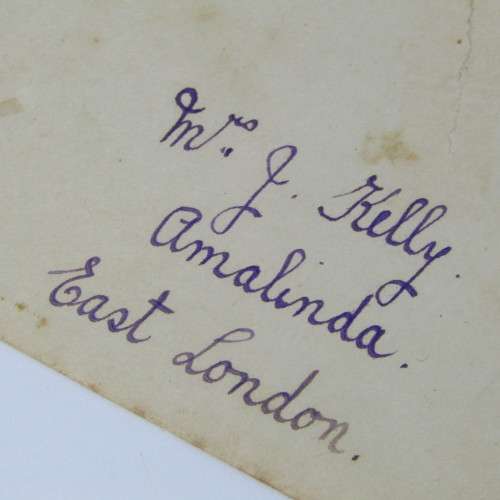 Mrs. J. Kelly.
Amalinda.
East London.